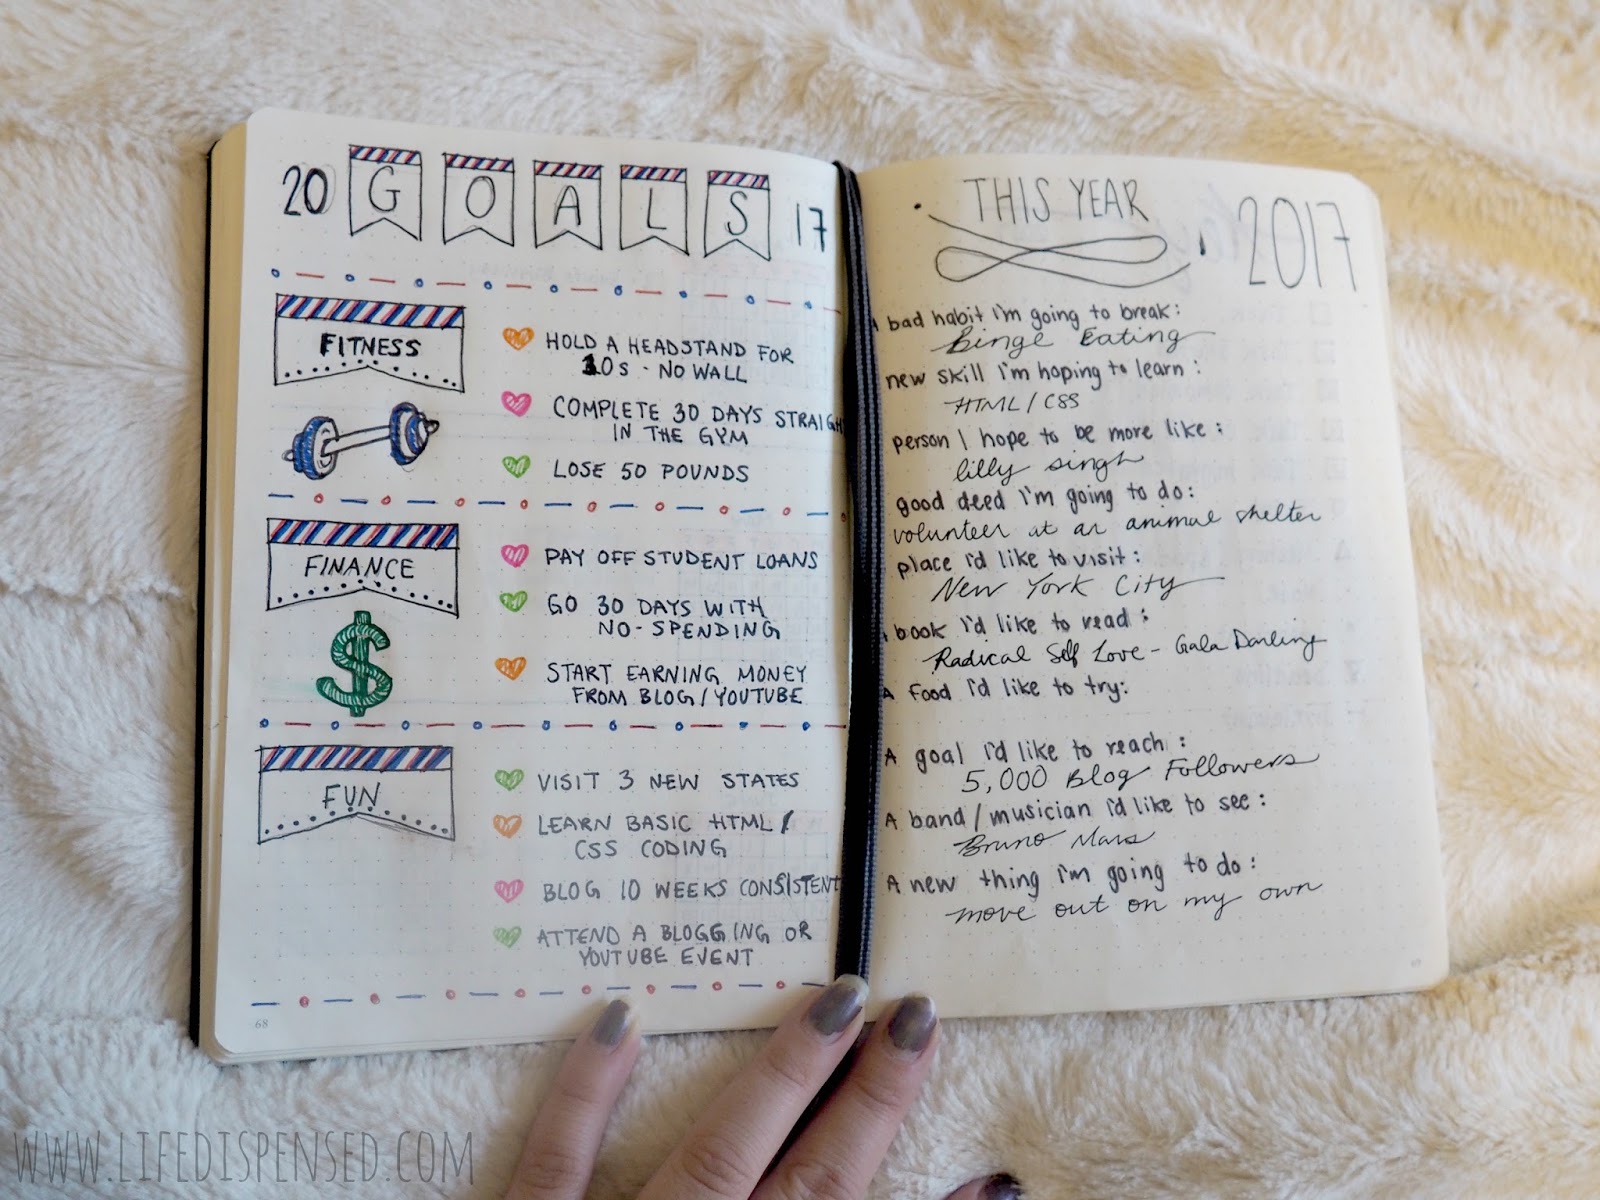 20 GOALS 17
FITNESS
HOLD A HEADSTAND FOR
10s - NO WALL
COMPLETE 30 DAYS STRAIGH
IN THE GYM
LOSE 50 POUNDS
FINANCE
PAY OFF STUDENT LOANS
GO 30 DAYS WITH
NO-SPENDING
START EARNING MONEY
FROM BLOG/YOUTUBE
FUN
VISIT 3 NEW STATES
LEARN BASIC HTML/
CSS CODING
BLOG 10 WEEKS CONSISTENT
ATTEND A BLOGGING OR
YOUTUBE EVENT
68
THIS YEAR
2017
A bad habit i'm going to break:
Binge Eating
new skill i'm hoping to learn:
HTML/CSS
person I hope to be more like:
lilly singh
good deed i'm going to do:
volunteer at an animal shelter
place i'd like to visit:
New York City
A book i'd like to read:
Radical Self Love - Gala Darling
A food i'd like to try:
A goal i'd like to reach:
5,000 Blog Followers
A band/musician i'd like to see:
Bruno Mars
A new thing i'm going to do:
move out on my own
69
WWW.LIFEDISPENSED.COM